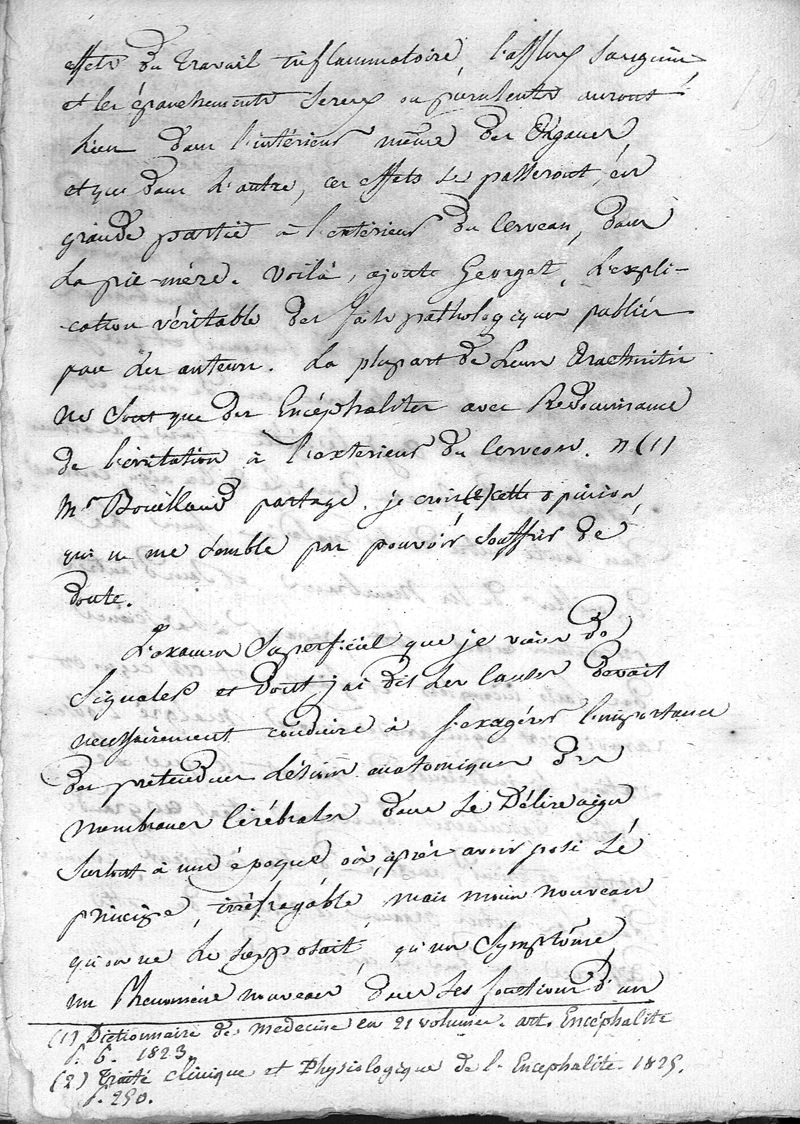 effets du travail inflammatoire, l'afflux sanguin
et les épanchements sereux ou purulents auront
lieu dans l'intérieur même des Organes
et que dans l'autre, ces effets se passeront, en
grande partie à l'extérieur du Cerveau, dans
la pie-mère. Voilà, ajoute Georget, l'expli-
cation véritable des faits pathologiques publiés
par les auteurs. La plupart de leurs Arachnitis
ne sont que des Encéphalites avec Prédominance
de l'irritation à l'exterieur du Cerveau. " (1)
Mr Bouillaud partage, je crois (2) cette opinion
qui ne me semble pas pouvoir souffrir de
doute.
L'examen Superficiel que je viens de
Signaler et dont j'ai dit les causes devait
necessairement conduire à s'exagérer l'importance
des prétendues lésions anatomiques des
membranes Cérébrales dans le Délire aigu
surtout à une époque où, après avoir posé le
principe, irréfragable, mais moins nouveau
qu'on ne le supposait, qu'un Symptôme,
un Phénomène nouveau dans les fonctions d'un
(1) Dictionnaire de médecine en 21 volumes. art. Encéphalite
p. 6. 1823.
(2) Traité Clinique et Physiologique de l'Encephalite. 1825.
p. 290.